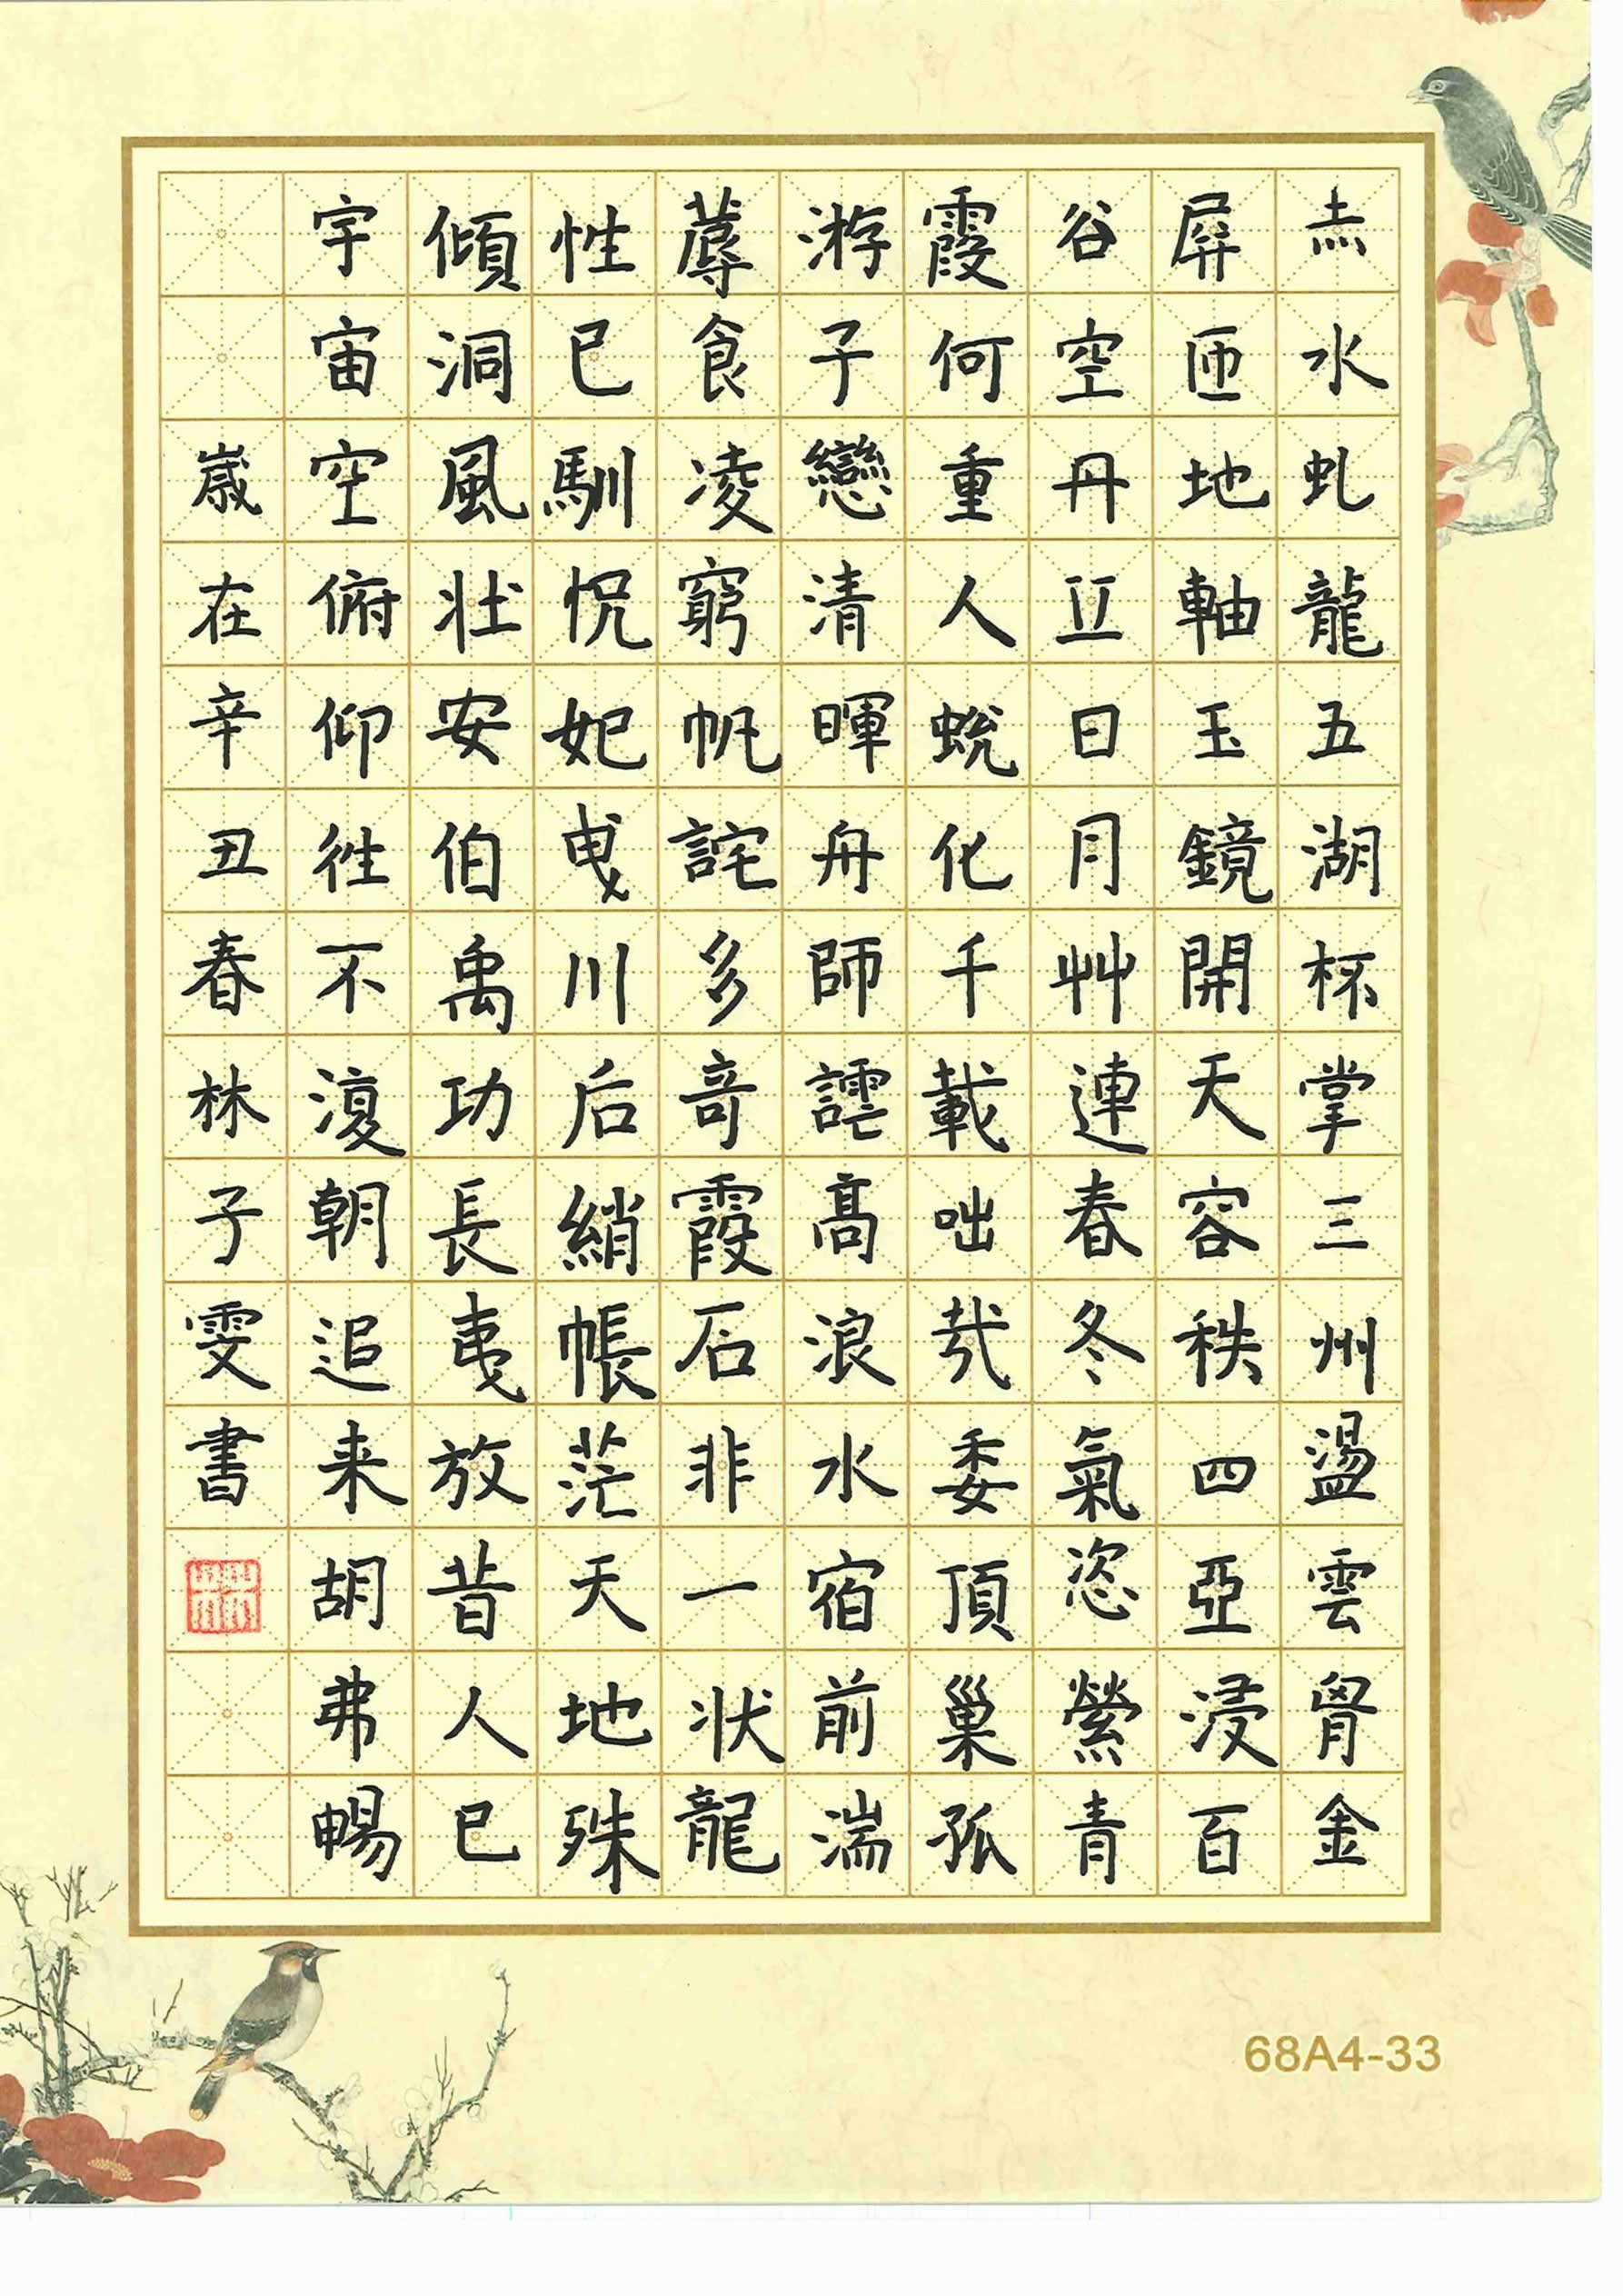 赤水虬龍五湖杯掌三州盪雲胷金
屏匝地軸玉鏡開天容秩四亞浸百
谷空丹亙日月艸連春冬氣恣縈青
霞何重人蛻化千載咄哉委頂巢孤
游子戀清暉舟師謔高浪水宿前湍
蓐食凌窮帆詫多奇霞石非一状龍
性已馴怳妃曳川后綃帳茫天地殊
傾洞風壯安伯禹功長夷放昔人已
宇宙空俯仰徃不復朝追来胡弗暢
歳在辛丑春林子雯書
68A4-33